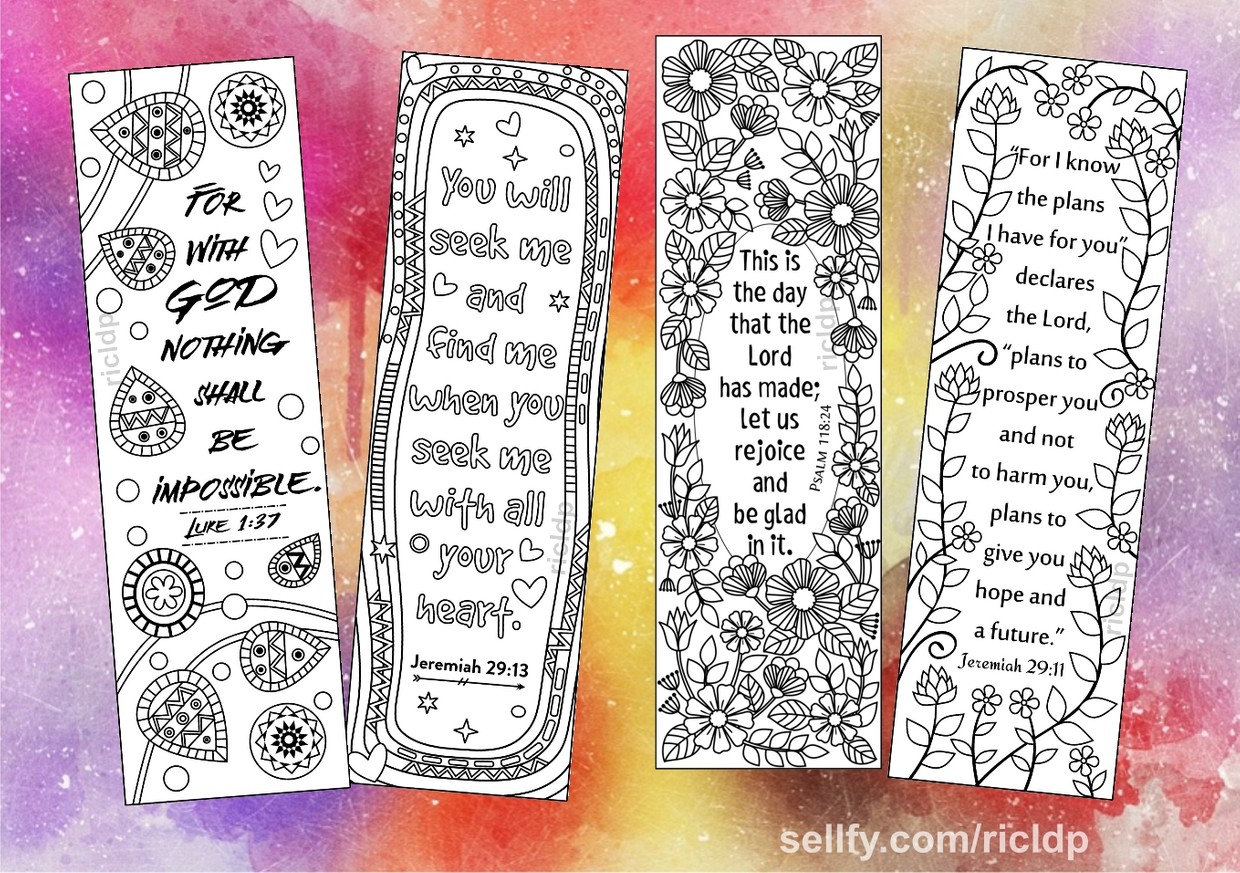 FOR
WITH
GOD
NOTHING
SHALL
BE
IMPOSSIBLE.
LUKE 1:37
ricldp
You will
seek me
and
find me
when you
seek me
with all
your
heart.
Jeremiah 29:13
ricldp
This is
the day
that the
Lord
has made;
let us
rejoice
and
be glad
in it.
PSALM 118:24
ricldp
“For I know
the plans
I have for you”
declares
the Lord,
“plans to
prosper you
and not
to harm you,
plans to
give you
hope and
a future.”
Jeremiah 29:11
ricldp
sellfy.com/ricldp